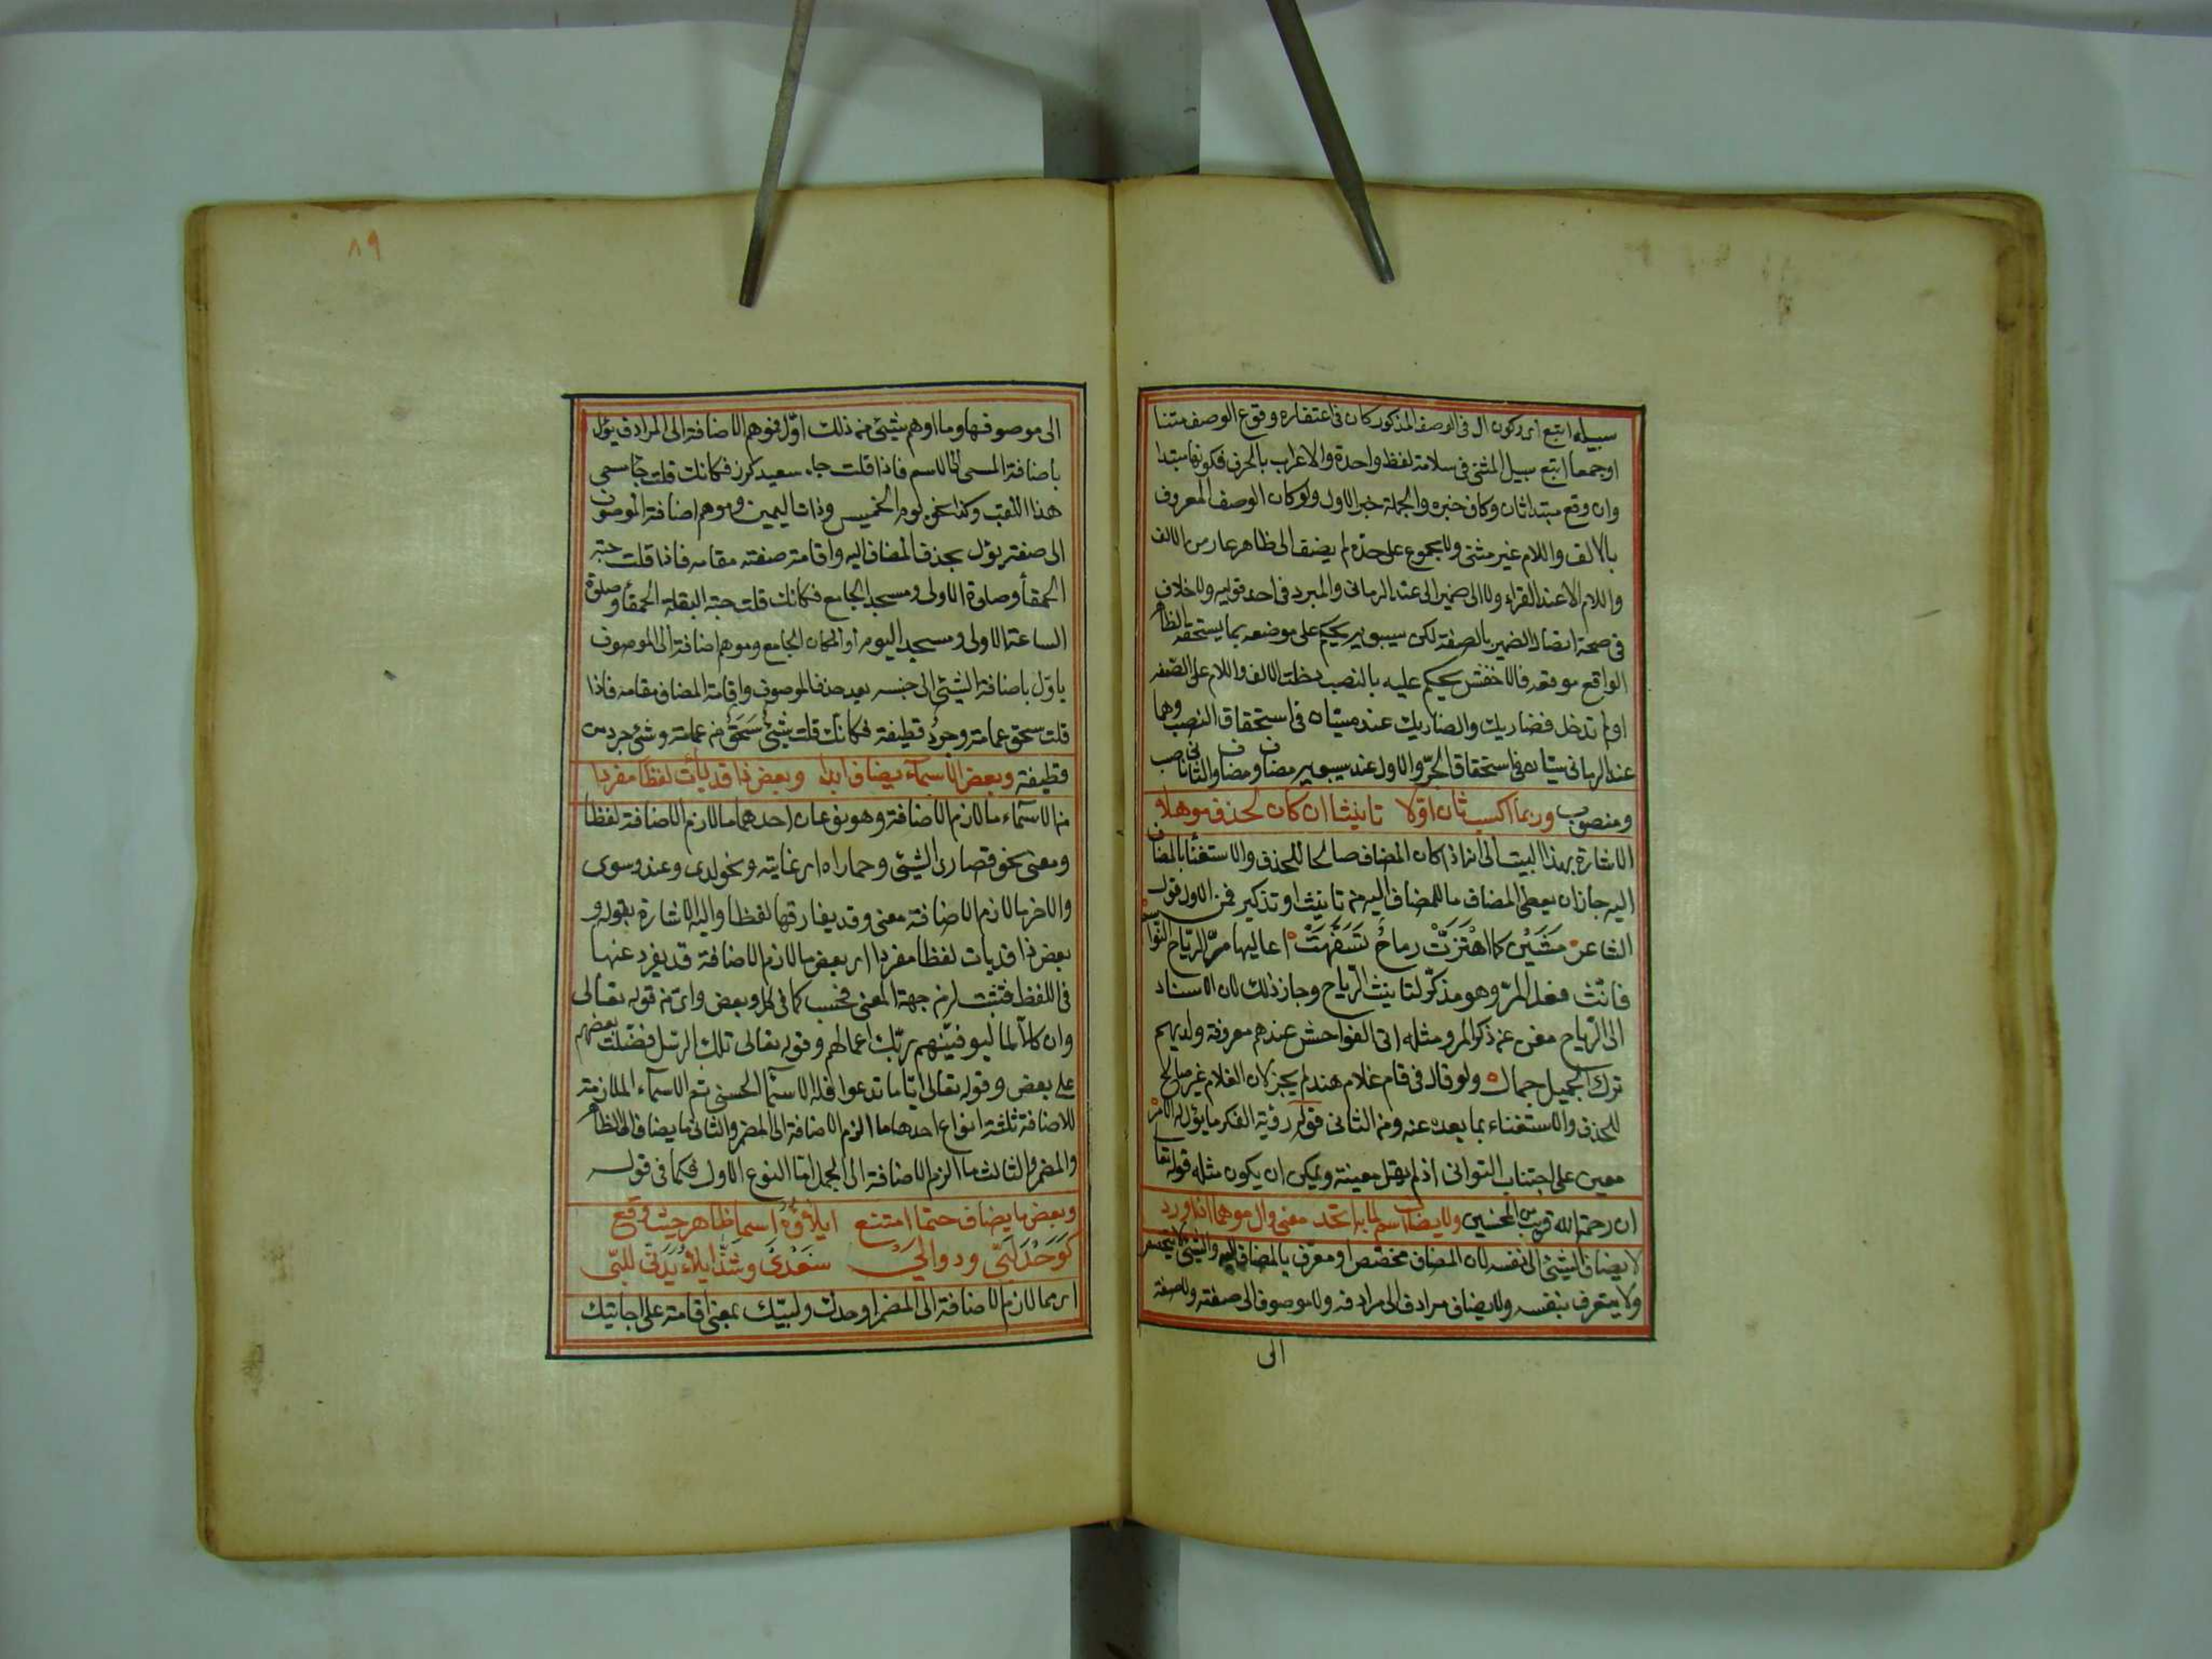 سبيله اتبع اى وكون ال فى الوصف المذكور كان فى اعتفاره وقوع الوصف مثنا
او جمعا اتبع سبيل المثنى فى سلامة لفظ واحدة والاعراب بالحرف فكونها مبتدا
وان وقع مبتدا ثان وكاف خبره والجملة خبر الاول ولو كان الوصف المعروف
بالالف واللام غير مثنى ولا مجموع على حدّه لم يضف الى ظاهر عار من الالف
واللام الا عند الفراء ولا الى ضمير الى عند الرمانى والمبرد فى احد قوليه ولا خلاف
فى صحة اتصال الضمير بالصفة لكن سيبويه يحكم على موضعه بما يستحقه الظا
الواقع موقعه فالاخفش يحكم عليه بالنصب دخلت الالف واللام على الصّفه
او لم تدخل فضاربك والضاربك عنده سيّان فى استحقاق النصب وهما
عند الرمانى سيّان فى استحقاق الجرّ والاول عند سيبويه مضاف ومضاف والثانى ناصب
ومنصوب وربما اكسب ثان اوّلا تانيثا ان كان لحذف موهلا
الاشارة بهذا البيت الى انه اذا كان المضاف صالحا للحذف والاستغنا بالمضاف
اليه جاز ان يعطى المضاف ما للمضاف اليه من تانيث او تذكير فمن الاول قول
الشاعر مَشَيْن كما اهْتَزَتَّْ رماحٌ تَسَفَّهَتْ اعاليها مرّ الرّياح النّواسم
فانّث فعل المرّ وهو مذكّر لتانيث الرّياح وجاز ذلك لان الاسناد
الى الرّياح مغن عن ذكر المر ومثله اتى الفواحش عندهم معروفة ولديهم
ترك الجميل جمال ولو قال فى قام غلام هند لم يجز لان الغلام غير صالح
للحذف والاستغناء بما بعده عنه ومن الثانى قوله رؤية الفكر ما يؤل له الامر
معين على اجتناب التوانى اذ لم يقل معينة ويمكن ان يكون مثله قوله تعا
ان رحمة الله قريب من المحسنين ولا يضاف اسم لما به اتحد معنى واوّل موهما اذا ورد
لا يضاف الشيئ الى نفسه لان المضاف مخصّص او معرّف بالمضاف اليه والشيئ لا يتخصص
ولا يتعرف بنفسه ولا يضاف مرادف الى مرادفه ولا موصوف الى صفته ولا صفة
الى
٨٩
الى موصوفها وما اوهم بشيئ من ذلك اوّل فموهم الاضافة الى المرادف يؤل
باضافة المسمى الى الاسم فاذا قلت جاء سعيد كرز فكانك قلت جا مسمى
هذا اللقب وكذا نحو يوم الخميس وذات اليمين وموهم اضافة الموصوف
الى صفته يؤل بحذف المضاف اليه واقامة صفته مقامه فاذا قلت حبة
الحمقأ وصلوة الاولى ومسجد الجامع فكانك قلت حبة البقلة الحمقأ وصلوة
الساعة الاولى ومسجد اليوم او المكان الجامع وموهم اضافة الى الموصوف
ياوّل باضافة الشيئ الى جنسه بعد حذف الموصوف واقامة المضاف مقامه فاذا
قلت سحق عمامة وجردُ قطيفة فكانك قلت شيئٌ سَحَقٌ من عمامة وشئ جرد من
قطيفة وبعض الاسمآء يضاف ابدا وبعض ذا قد يأت لفظا مفردا
من الاسمآء ما لازم الاضافة وهو نوعان احدهما ما لازم الاضافة لفظا
ومعنى نحو قصارى الشيئ وحماداه اى غايته ونحو لدى وعند وسوى
والاخر ما لازم الاضافة معنى وقد يفارقها لفظا واليه الاشارة بقوله و
بعض ذا قد يات لفظا مفردا اى بعض ما لازم الاضافة قد يفرد عنها
فى اللفظ فتثبت له من جهة المعنى فحسب كما فى كل وبعض واىّ من قوله تعالى
وان كلا لما ليوفينّهم ربّك اعمالهم وقوله تعالى تلك الرّسل فضّلنا بعضهم
على بعض وقوله تعالى ايّا ما تدعوا فله الاسمآ الحسنى ثم الاسمآء الملازمة
للاضافة ثلثة انواع احدها ما الزم الاضافة الى المضمر والثانى ما يضاف الى الظا
والمضمر والثالث ما الزم الاضافة الى الجمل امّا النوع الاول فكما فى قوله
وبعض ما يضاف حتما امتنع ايلاؤُهُ اسما ظاهر حيث وقع
كوَحْدَ لَبَّى ودوالَيْ سَعْدَىْ وشَذَّ ايلاءُ يَدَىْ للبّى
اى مما لازم الاضافة الى المضمر وحدك ولبيّك بمعنى اقامة على اجابتك